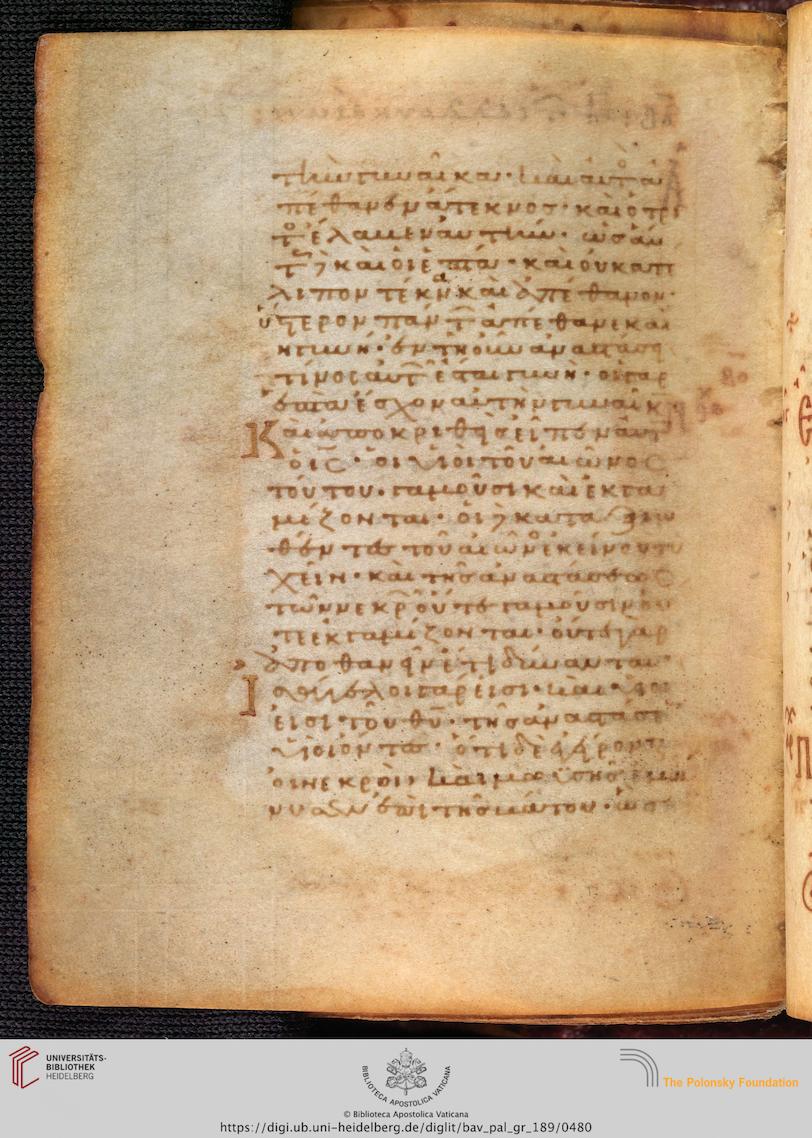 τὴν γυναῖκα· καὶ οὗτο ἀ
πέθανεν ἄτεκνος· καὶ ὁ τρι
το ἔλαβεν αὐτὴν· ὡσαύ
τ δὲ καὶ οἱ ἑπτά· καὶ οὐ κατέ
λιπον τέκνα καὶ ἀπέθανον·
ὕστερον πάντ ἀπέθανε καὶ
ἡ γυνή· ἐν τῇ οὖν ἀναστάσει
τίνος αὐτ ἔσται γυνή· οἱ γὰρ
ἑπτὰ ἔσχον αὐτὴν γυναῖκα
Καὶ ἀποκριθεὶς εἶπεν αὐτ
ὁ ΙϹ· οἱ υἱοὶ τοῦ αἰῶνος
τούτου· γαμοῦσι καὶ ἐκγα
μίζονται· οἱ δὲ καταξιω
θέντες τοῦ αἰῶνο ἐκείνου τυ
χεῖν· καὶ τῆς ἀναστάσεως
τῶν νεκρ οὔτε γαμοῦσιν οὔ
τε ἐκγαμίζονται· οὔτε γὰρ
ἀποθανεῖν ἔτι δύνανται·
Ἰσάγγελοι γάρ εἰσι· καὶ υἱοί
εἰσι τοῦ θυ· τῆς ἀναστάσεως
υἱοὶ ὄντες· ὅτι δὲ ἐγείρονται
οἱ νεκροὶ καὶ μωϋσῆς ἐμή
νυσεν ἐπὶ τῆς βάτου· ὡς
UNIVERSITÄTS-
BIBLIOTHEK
HEIDELBERG
BIBLIOTECA APOSTOLICA VATICANA
The Polonsky Foundation
© Biblioteca Apostolica Vaticana
https://digi.ub.uni-heidelberg.de/diglit/bav_pal_gr_189/0480